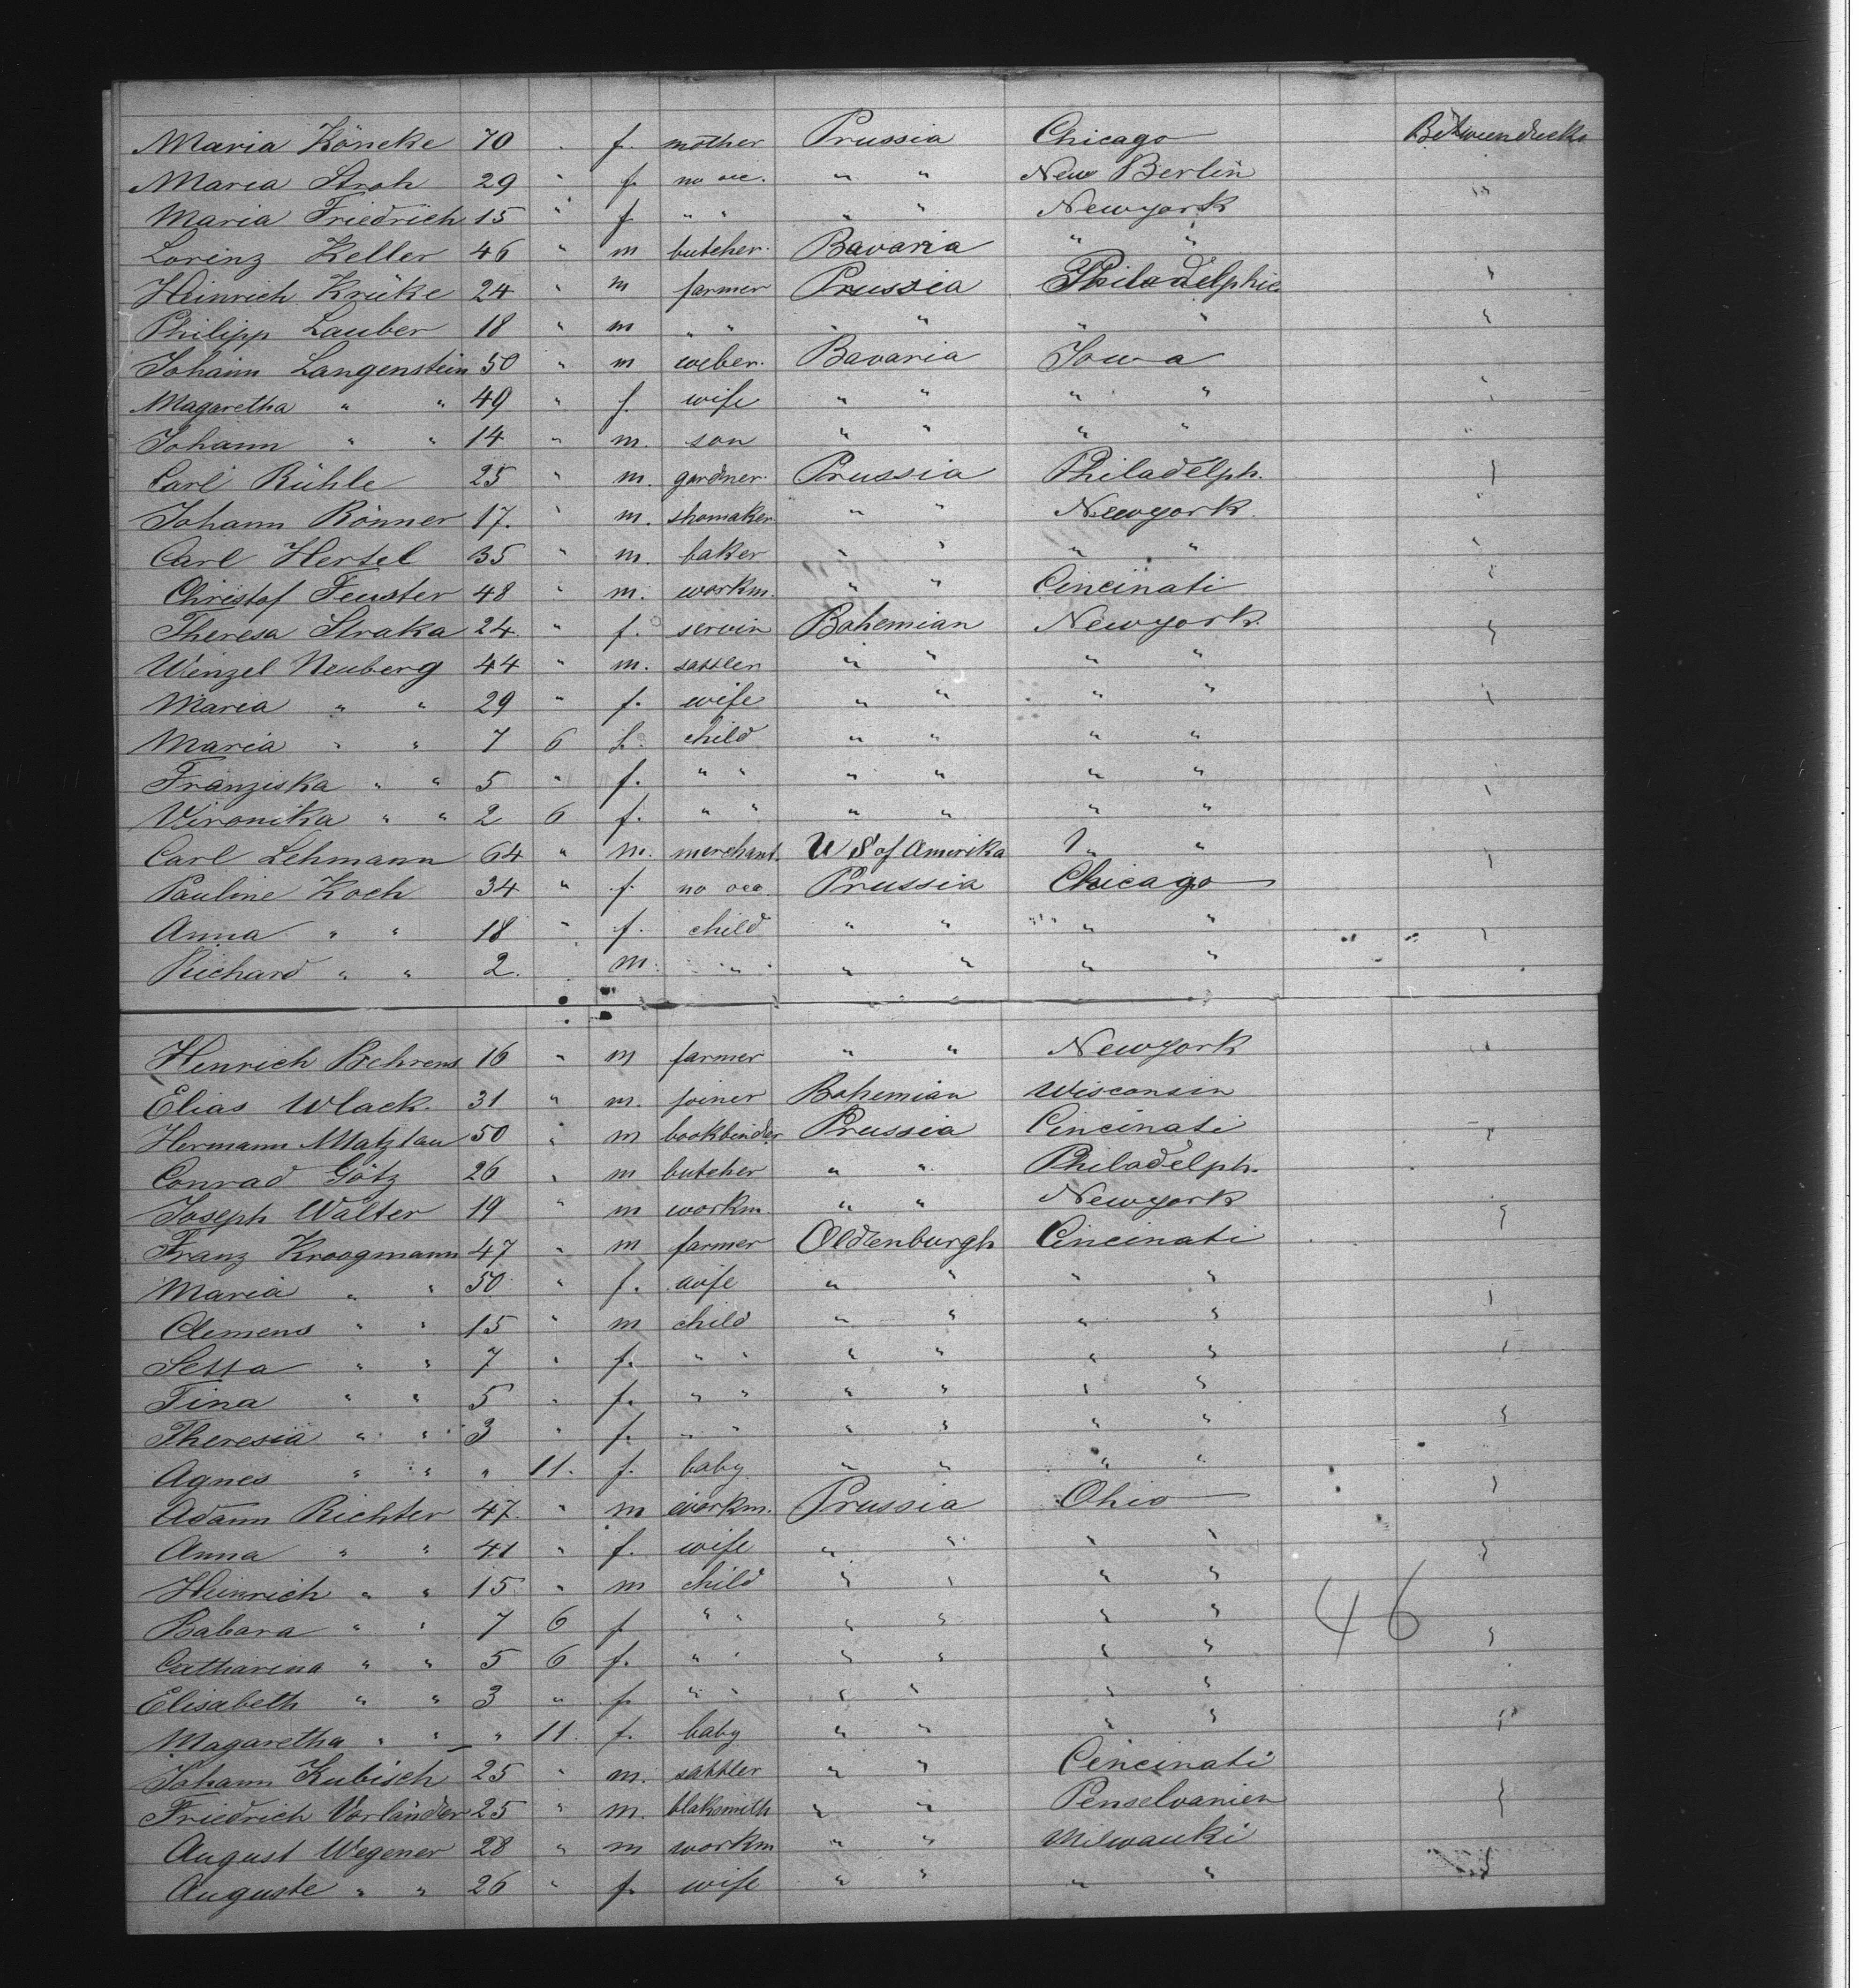 Maria Köneke 70 " f. mother Prussia Chicago Betwendecks
Maria Stroh 29 " f. no occ. " " New Berlin "
Maria Friedrich 15 " f " " " " Newyork
Lorinz Keller 46 " m butcher. Bavaria " "
Heinrich Krüke 24 " m farmer Prussia Philadelphia "
Philipp Lauber 18 " m " " " " " " "
Johann Langenstein 50 " m weber. Bavaria Iowa
Magaretha " " 49 " f. wife " " " " "
Johann " " 14 " m. son " " " " "
Carl Rühle 25 " m. gardner. Prussia Philadelph. "
Johann Rönner 17. " m. shomaker " " Newyork. "
Carl Hertel 35 " m. baker " " " " "
Christof Feuster 48 " m. workm. " " Cincinati "
Theresa Straka 24 " f. servin Bohemian Newyork. "
Winzel Neuberg 44 " m. sattler " " " "
Maria " " 29 " f. wife " " " " "
Maria " " 7 6 f. child " " " "
Franziska " " 5 " f. " " " " " " "
Vironika " " 2 6 f. " " " " " "
Carl Lehmann 64 " m. merchant. U S of Amerika " " "
Pauline Koch 34 " f. no occ. Prussia Chicago
Anna " " 18 " f. child " " " " "
Richard " " 2. m. " " " " "
Hinrich Behrens 16 " m farmer " " Newyork "
Elias Wlack. 31 " m. joiner Bohemian Wisconsin
Hermann Matzlau 50 " m bookbinder Prussia Cincinati "
Conrad Götz 26 " m butcher " " Philadelph.
Joseph Walter 19 " m workm. " " Newyork "
Franz Kroogmann 47 " m farmer Oldenburgh Cincinati
Maria " " 50 " f. wife " " " " "
Clemens " " 15 " m child " " " "
Setta " " 7 " f. " " " " " " "
Tina " " 5 " f. " " " " " "
Theresia " " 3 " f. " " " " " " "
Agnes " " " 11. f. baby " " " "
Adam Richter 47. " m workm. Prussia Ohio "
Anna " " 41 " f. wife " " " " "
Heinrich " " 15 " m child " " " "
Babara " " 7 6 f " " " " " " 46 "
Catharina " " 5 6 f. " " " " " "
Elisabeth " " 3 " f. " " " " " "
Magaretha " " " 11. f. baby " " " " "
Johann Kubisch 25 " m. sattler " " Cincinati
Friedrich Vorländer 25 " m. blaksmith " " Penselvanien "
August Wegener 28 " m workm " " Milwauki
Auguste " " 26 " f. wife " " " "